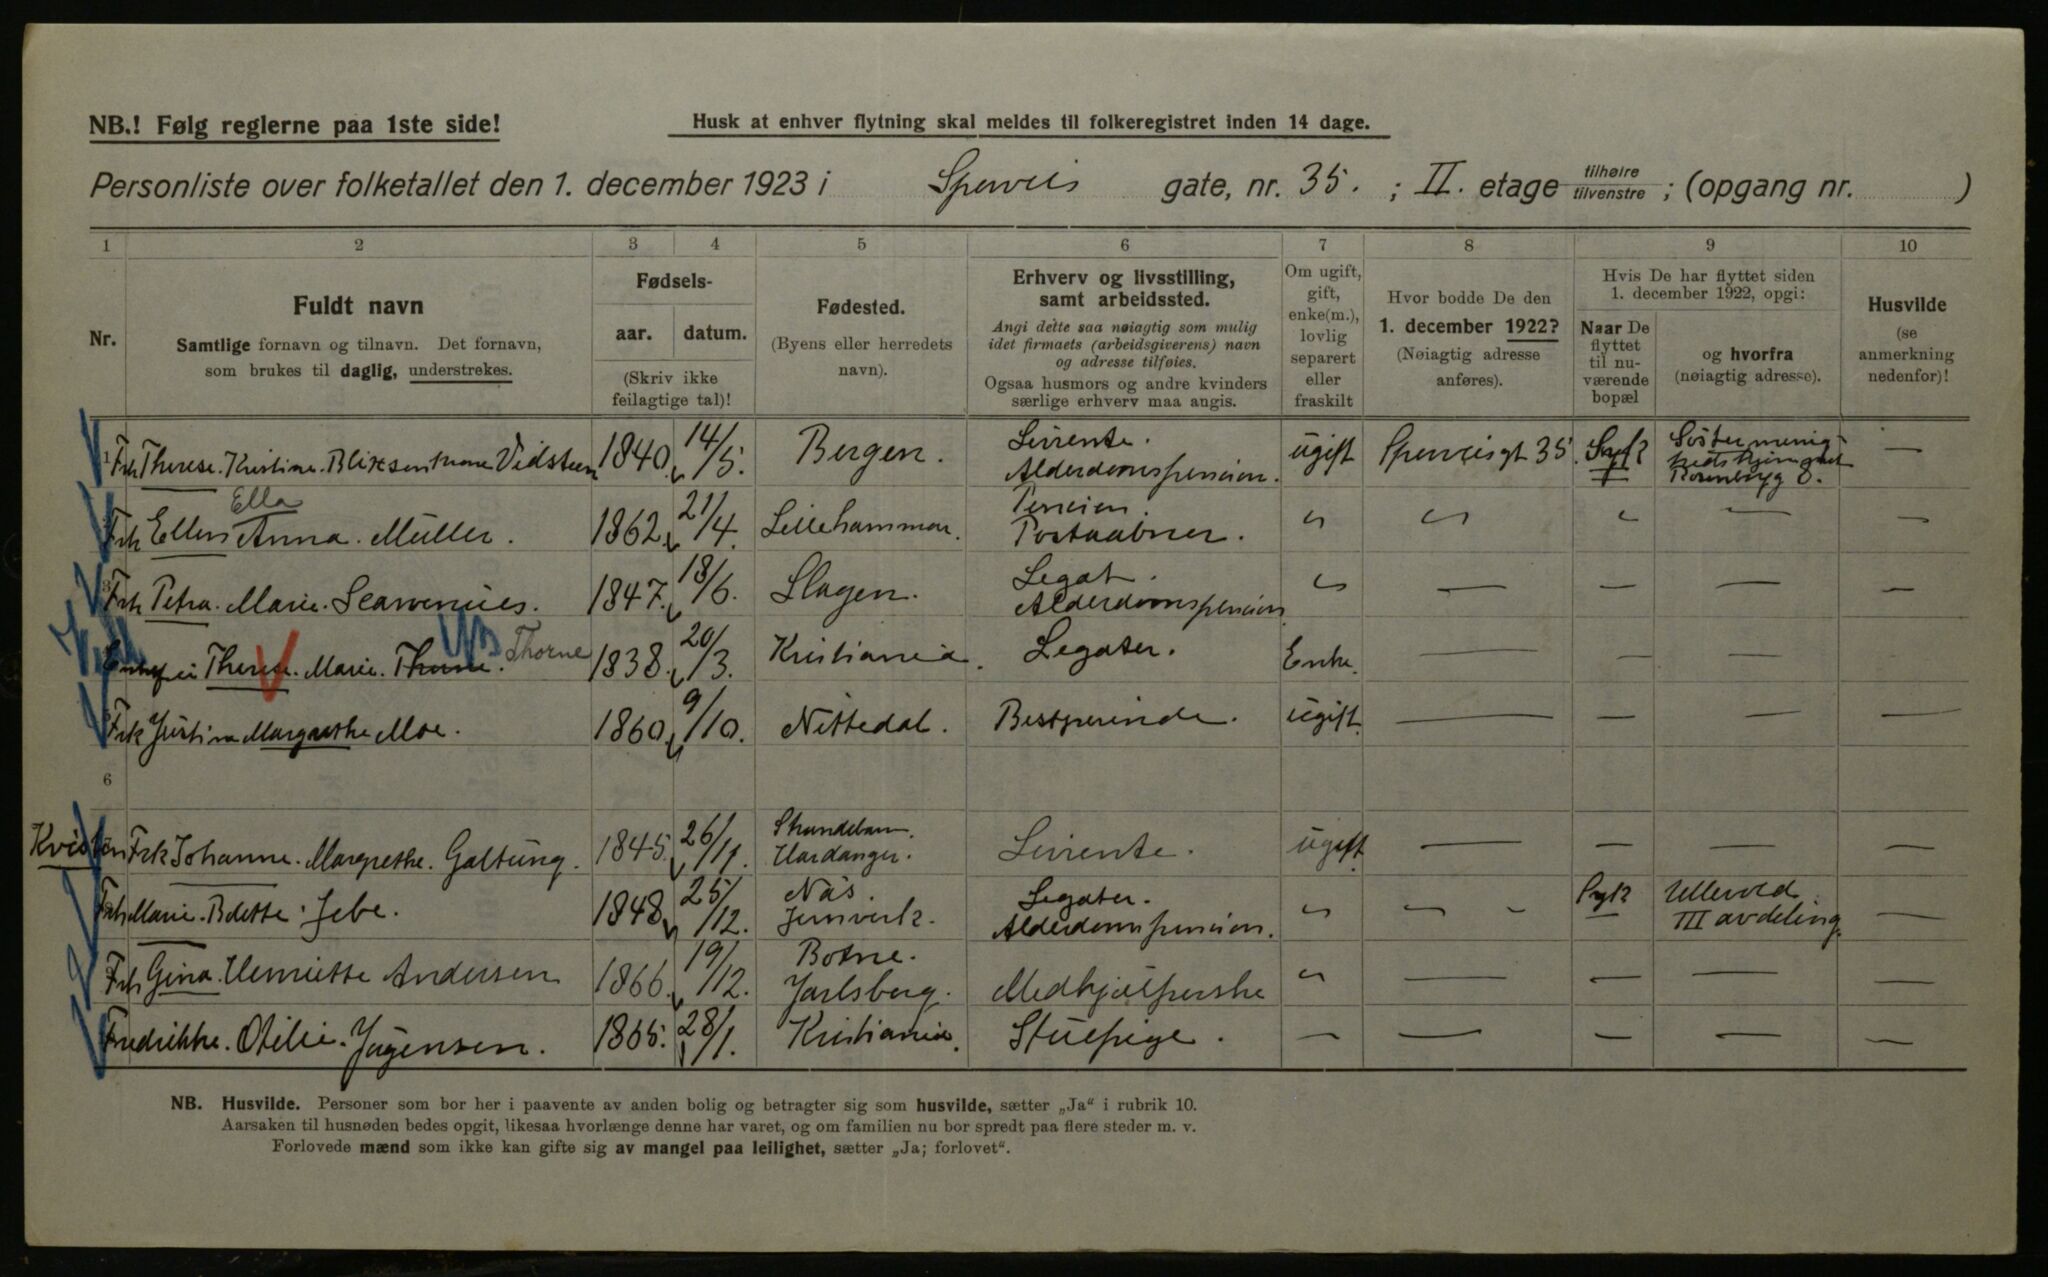 NB.! Følg reglerne paa 1ste side!
Husk at enhver flytning skal meldes til folkeregistret inden 14 dage.
Personliste over folketallet den 1. december 1923 i Sporveis gate, nr. 35. ; II. etage tilhøire tilvenstre ; (opgang nr. )
1 2 3 4 5 6 7 8 9 10
Nr.
Fuldt navn
Samtlige fornavn og tilnavn. Det fornavn,
som brukes til daglig, understrekes.
Fødsels-
aar. datum.
(Skriv ikke
feilagtige tal)!
Fødested.
(Byens eller herredets
navn).
Erhverv og livsstilling,
samt arbeidssted.
Angi dette saa nøiagtig som mulig
idet firmaets (arbeidsgiverens) navn
og adresse tilføies.
Ogsaa husmors og andre kvinders
særlige erhverv maa angis.
Om ugift,
gift,
enke(m.),
lovlig
separert
eller
fraskilt
Hvor bodde De den
1. december 1922?
(Nøiagtig adresse
anføres).
Hvis De har flyttet siden
1. december 1922, opgi:
Naar De
flyttet
til nu-
værende
bopæl
og hvorfra
(nøiagtig adresse).
Husvilde
(se
anmerkning
nedenfor)!
1 Frk Therese. Kristine. Vidsteen 1840. 14/5. Bergen. Livrente. Alderdomspension. ugift Sporveisgt 35. Syk —
Ella
Frk Ellen Anna. Müller. 1862. 21/4. Lillehammer. Pension. Postaabner. " " " — —
3 Frk Petra. Marie. Scavenius. 1847. 18/6. Slagen. Legat. Alderdomspension " — — — —
Therese. Marie. Thorne 1838. 20/3. Kristiania. Legater. Enke. — — — —
Frk Justine Margrethe Moe. 1860. 9/10. Nittedal. Bestyrerinde. ugift. — — — —
6
Frk Johanne. Margrethe. Galtung. 1845. 26/11. Strandebarm. Hardanger. Livrente. ugift — — — —
Frk Marie. Bdette. Jebe. 1848. 25/12. Näs. Jernverk. Legater. Alderdomspension. " " - Syk Ullevold III avdeling. —
Frk Gina. Henriette Andersen 1866. 19/12. Botne. Jarlsberg. Medhjælperske " — — — —
Fredrikke. Otilie. Jørgensen. 1865. 28/1. Kristiania. Stuepige. — — — — —
NB. Husvilde. Personer som bor her i paavente av anden bolig og betragter sig som husvilde, sætter „Ja“ i rubrik 10.
Aarsaken til husnøden bedes opgit, likesaa hvorlænge denne har varet, og om familien nu bor spredt paa flere steder m. v.
Forlovede mænd som ikke kan gifte sig av mangel paa leilighet, sætter „Ja; forlovet“.